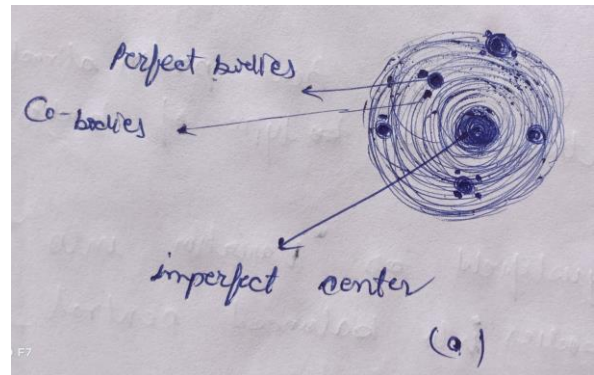 Perfect bodies
Co-bodies
imperfect center
(a)
F7